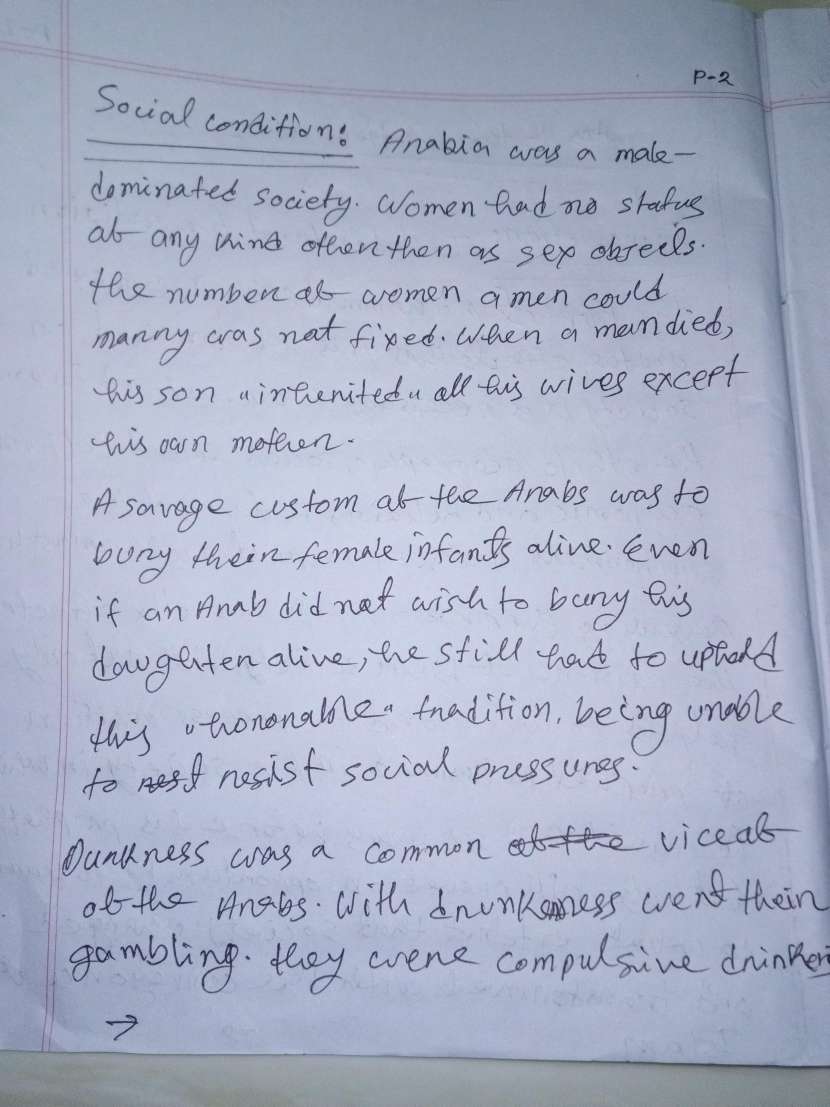 P-2
Social condition: Arabia was a male-
dominated society. Women had no status
of any kind other then as sex objects.
the number of women a men could
marry was not fixed. When a man died,
his son "inherited" all his wives except
his own mother.
A savage custom of the Arabs was to
bury their female infants alive. Even
if an Arab did not wish to bury his
daughter alive, he still had to uphold
this "honorable" tradition, being unable
to resist social pressures.
Dunkness was a common of the vice of
of the Arabs. With drunkenness went their
gambling. they were compulsive drinker
→